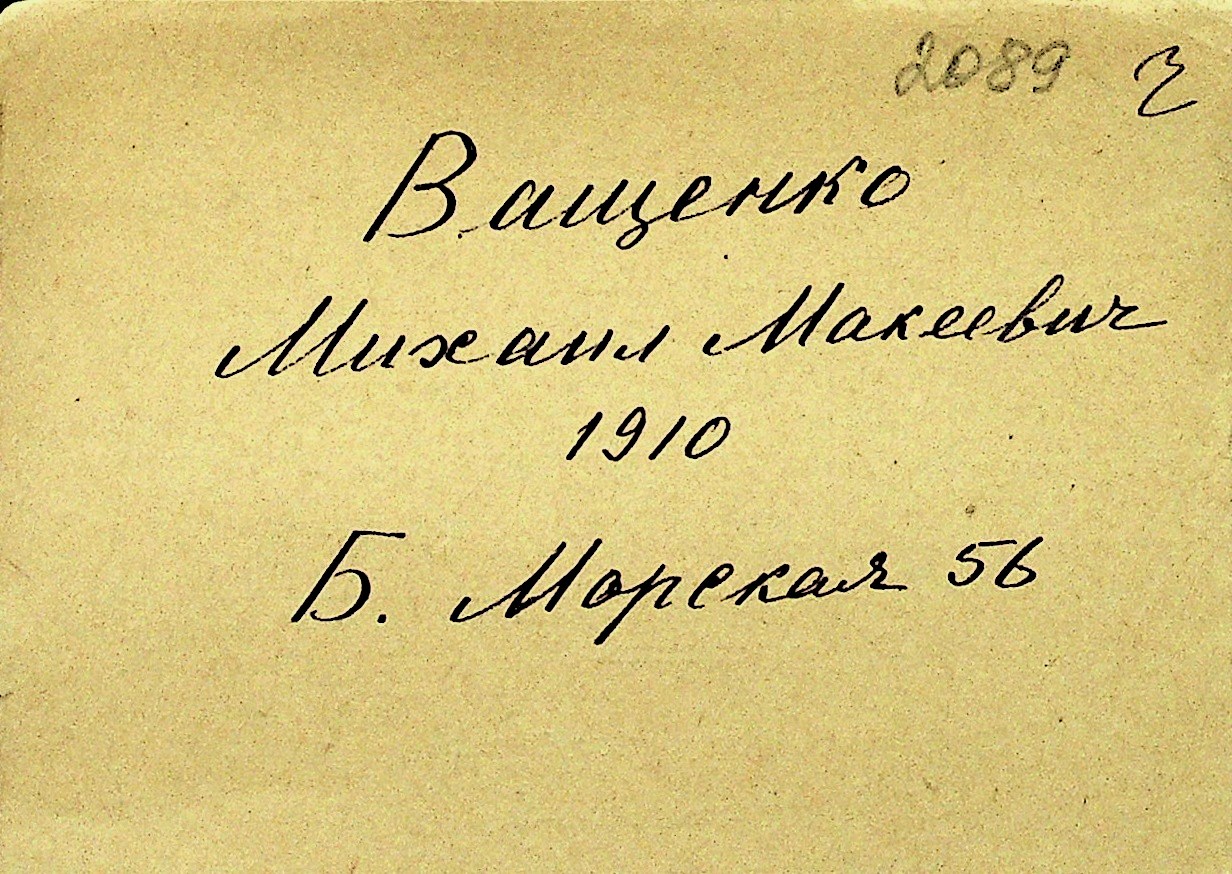 2089
Ващенко
Михаил Макеевич
1910
Б. Морская 56